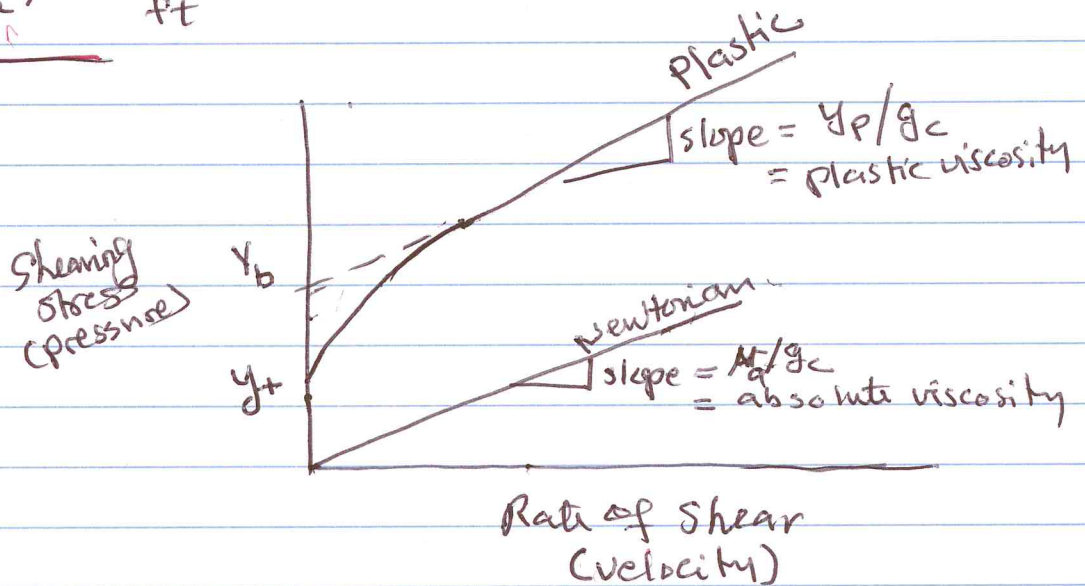 ft
Plastic
slope = yp/gc
= plastic viscosity
Shearing
stress
(pressure)
Yb
yt
Newtonian
slope = μa/gc
= absolute viscosity
Rate of shear
(velocity)